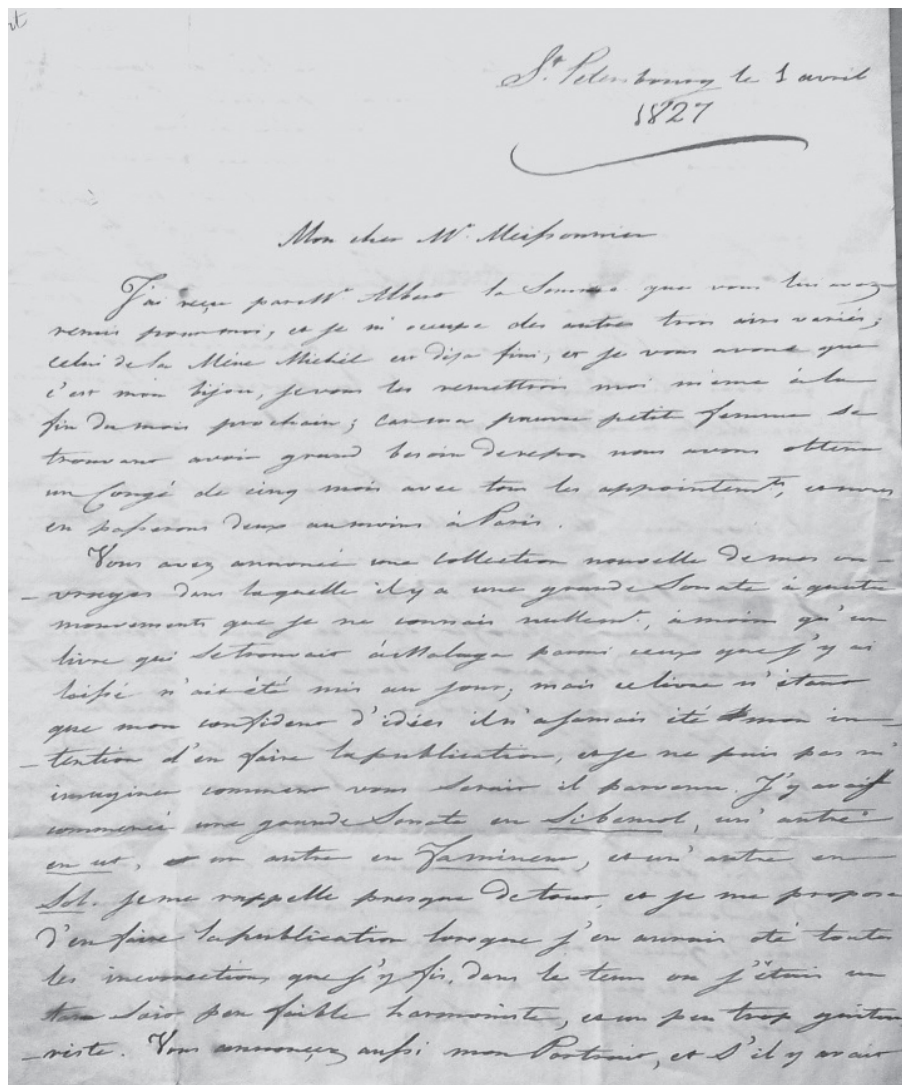 rt
St. Petersbourg le 1 avril
1827
Mon cher Mr. Meissonnier
J'ai reçu par Mr. Albert la Somme que vous lui avez
remis pour moi, et je m'occupe des autres trois airs variés;
celui de la Mère Michel est deja fini, et je vous avoue que
c'est mon bijou, je vous les remettrois moi meme à la
fin du mois prochain; car ma pauvre petit femme se
trouvant avoir grand besoin de repos nous avons obtenu
un Congé de cinq mois avec tous les appointemts, et nous
en passerons deux au moins à Paris.
Vous avez annoncé une collection nouvelle de mes ou-
-vrages dans laquelle il y a une grande Sonate à quatre
mouvements que je ne connais nullemt., à moins qu'un
livre qui se trouvait à Malaga parmi ceux que j'y ai
laissé n'ait été mis au jour; mais ce livre n'étant
que mon confident d'idées il n'a jamais été mon in-
-tention d'en faire la publication, et je ne puis pas m'
imaginer comment vous serait il parvenu. J'y avait
commencé une grande Sonate en Si bemol, un' autre
en ut, un autre en Fa mineur, et un' autre en
Sol. je me rappelle presque de tout, et je me propose
d'en faire la publication lorsque j'en aurais oté toutes
les incorrections que j'y fis, dans le tems ou j'étais un
peu faible harmoniste, et un peu trop guitar
-riste. Vous annoncez aussi mon Portrait, et S'il y avait